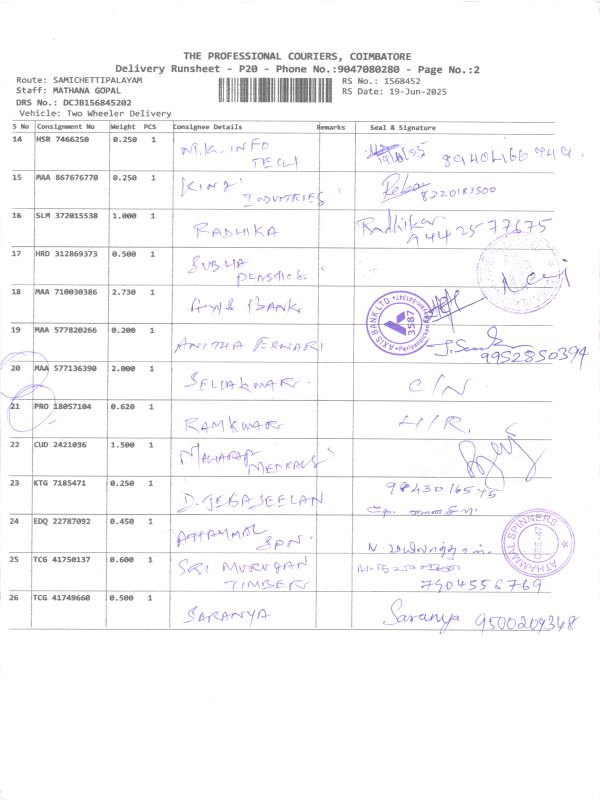 THE PROFESSIONAL COURIERS, COIMBATORE
Delivery Runsheet - P20 - Phone No.:9047080280 - Page No.:2
Route: SAMICHETTIPALAYAM
Staff: MATHANA GOPAL
DRS No.: DCJB156845202
Vehicle: Two Wheeler Delivery
RS No.: 1568452
RS Date: 19-Jun-2025
S No Consignment No Weight PCS Consignee Details Remarks Seal & Signature
14 HSR 7466250 0.250 1 M.K. INFO TECH
15 MAA 867676770 0.250 1 KING INDUSTRIES 8220183500
16 SLM 372015538 1.000 1 RADHIKA Radhika 9442577675
17 HRD 312869373 0.500 1 SUBHA PLASTICS
18 MAA 710030386 2.730 1 AXIS BANK AXIS BANK LTD 3587
19 MAA 577820266 0.200 1 ANITHA 9952850394
20 MAA 577136390 2.000 1 SELVAKUMAR C/N
21 PRO 18057104 0.620 1 RAMKUMAR
22 CUD 2421036 1.500 1 MAHARAJ MEDICALS
23 KTG 7185471 0.250 1 D. JEBASEELAN 9843016545
24 EDQ 22787092 0.450 1 ATHAMMAL SPN. ATHAMMAL SPINNERS
25 TCG 41750137 0.600 1 SRI MURUGAN TIMBERS 7904556769
26 TCG 41749660 0.500 1 SARANYA Saranya 9500209348